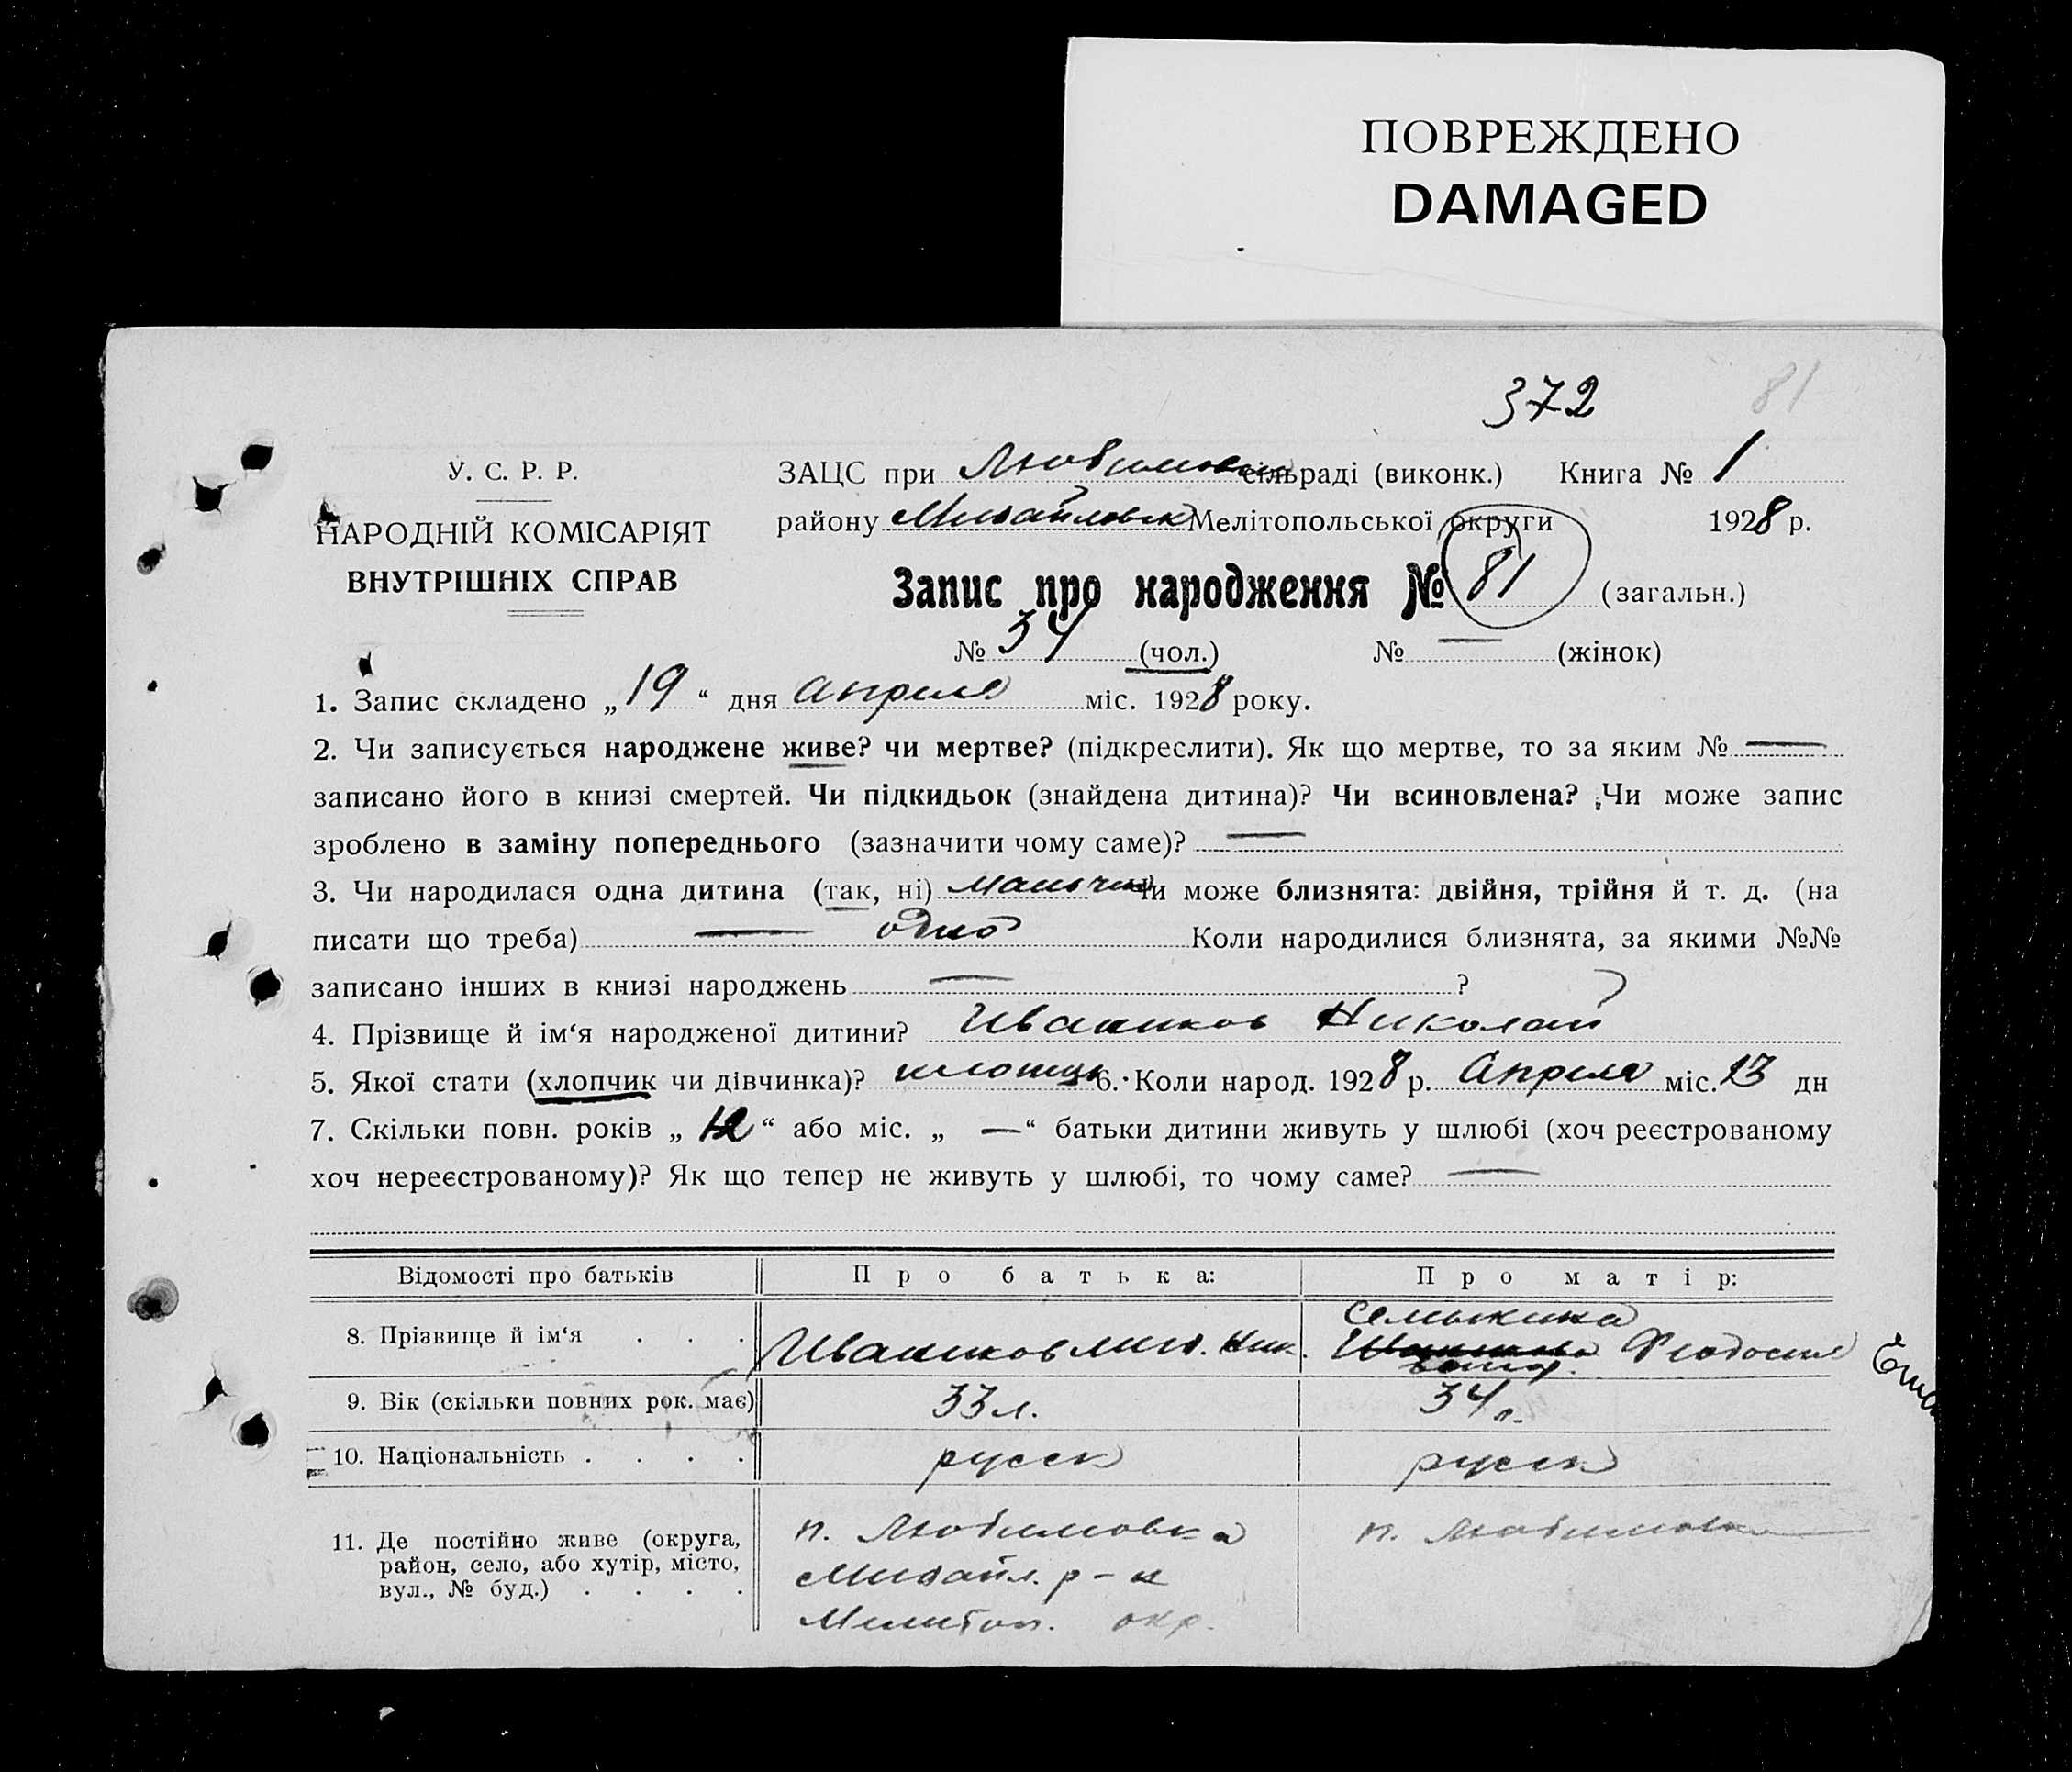 ПОВРЕЖДЕНО
DAMAGED
372 81
У. С. Р. Р.
НАРОДНІЙ КОМІСАРІЯТ
ВНУТРІШНІХ СПРАВ
ЗАЦС при Любимовск сільраді (виконк.) Книга № 1
району Михайловск Мелітопольської округи 1928 р.
Запис про народження № 81 (загальн.)
№ 34 (чол.) № — (жінок)
1. Запис складено „19“ дня Апреля міс. 1928 року.
2. Чи записується народжене живе? чи мертве? (підкреслити). Як що мертве, то за яким № —
записано його в книзі смертей. Чи підкидьок (знайдена дитина)? Чи всиновлена? Чи може запис
зроблено в заміну попереднього (зазначити чому саме)? —
3. Чи народилася одна дитина (так, ні) мальчик Чи може близнята: двійня, трійня й т. д. (на
писати що треба) — одно Коли народилися близнята, за якими №№
записано інших в книзі народжень — ?
4. Прізвище й ім‘я народженої дитини? Ивашков Николай
5. Якої стати (хлопчик чи дівчинка)? хлопець 6. Коли народ. 1928 р. Апреля міс. 13 дн
7. Скільки повн. років „12“ або міс. „—“ батьки дитини живуть у шлюбі (хоч реєстрованому
хоч нереєстрованому)? Як що тепер не живуть у шлюбі, то чому саме? —
Відомості про батьків Про батька: Про матір:
8. Прізвище й ім‘я . . . Ивашков Мих. Ник. Семыкина Ивашкова Феодосия
9. Вік (скільки повних рок. має) 33 л. 34 л.
10. Національність . . . . русск русск
11. Де постійно живе (округа,
район, село, або хутір, місто,
вул., № буд.) . . . .
п. Любимовка
Михайл. р-н
Мелитоп. окр.
п. Любимовка